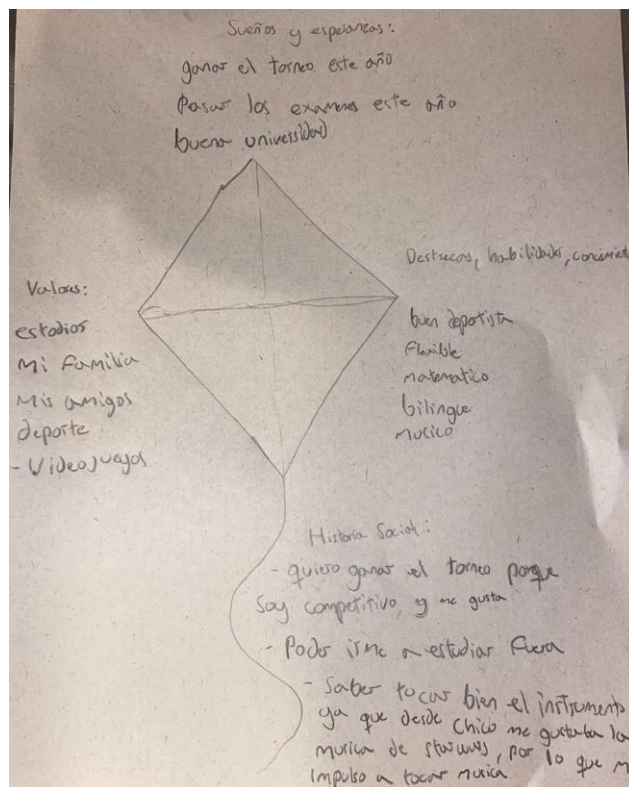 Sueños y esperanzas:
ganar el torneo este año
Pasar los examenes este año
buena universidad
Destrezas, habilidades,
Valores:
estudios
Mi Familia
Mis amigos
deporte
- Videojuegos
buen deportista
Flexible
matematico
bilingue
musico
Historia Social:
- quiero ganar el torneo porque
soy competitivo, y me gusta
- Poder irme a estudiar fuera
- Saber tocar bien el instrumento
ya que desde chico me gustaba la
musica de starwars, por lo que m
impulso a tocar musica